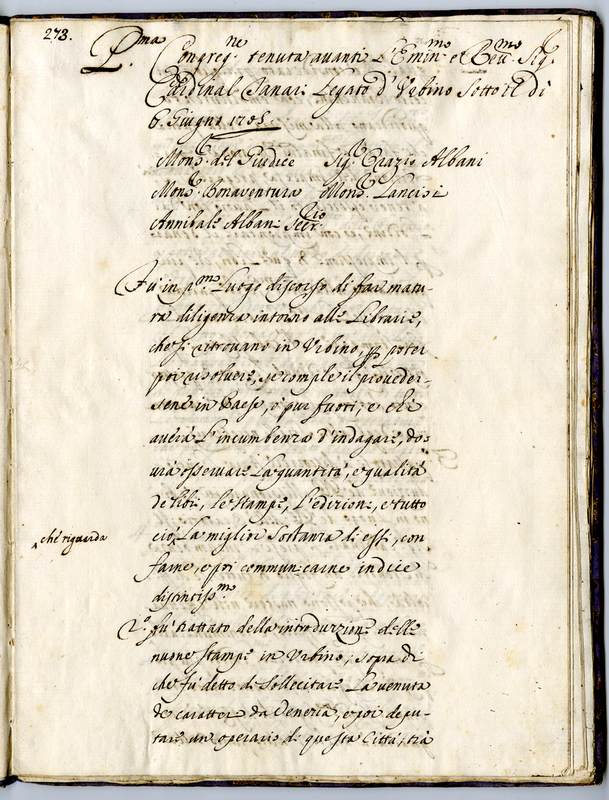 273.
P.ma Congreg.ne tenuta avanti l'Emin.mo e Rev.mo Sig.r
Cardinal Tanari Legato d'Urbino sotto il di
6. Giugno 1705.
Mons.r del Giudice Sig.r Orazio Albani
Mons.r Bonaventura Mons.r Lancisi
Annibale Albani Secr.rio
Fù in p.mo luogo discorso di far matu-
ra diligenza intorno alle Librarie,
che si ritrovano in Urbino, p poter
poi risolvere, se comple il proveder-
sene in Paese, ò pur fuori; e chi
averà l'incumbenza d'indagare, do-
urà osservare la quantità, e qualità
de libri, le stampe, l'edizioni, e tutto
ciò, la miglior sostanza di essi, con
ché riguarda
farne, e poi communicarne indice
distintiss.mo
2.o fù trattato della introduzzione delle
nuove stampe in Urbino; sopra di
che fù detto di sollecitare la venuta
de caratteri da Venezia, e poi depu-
tare un operario di questa Città, trà